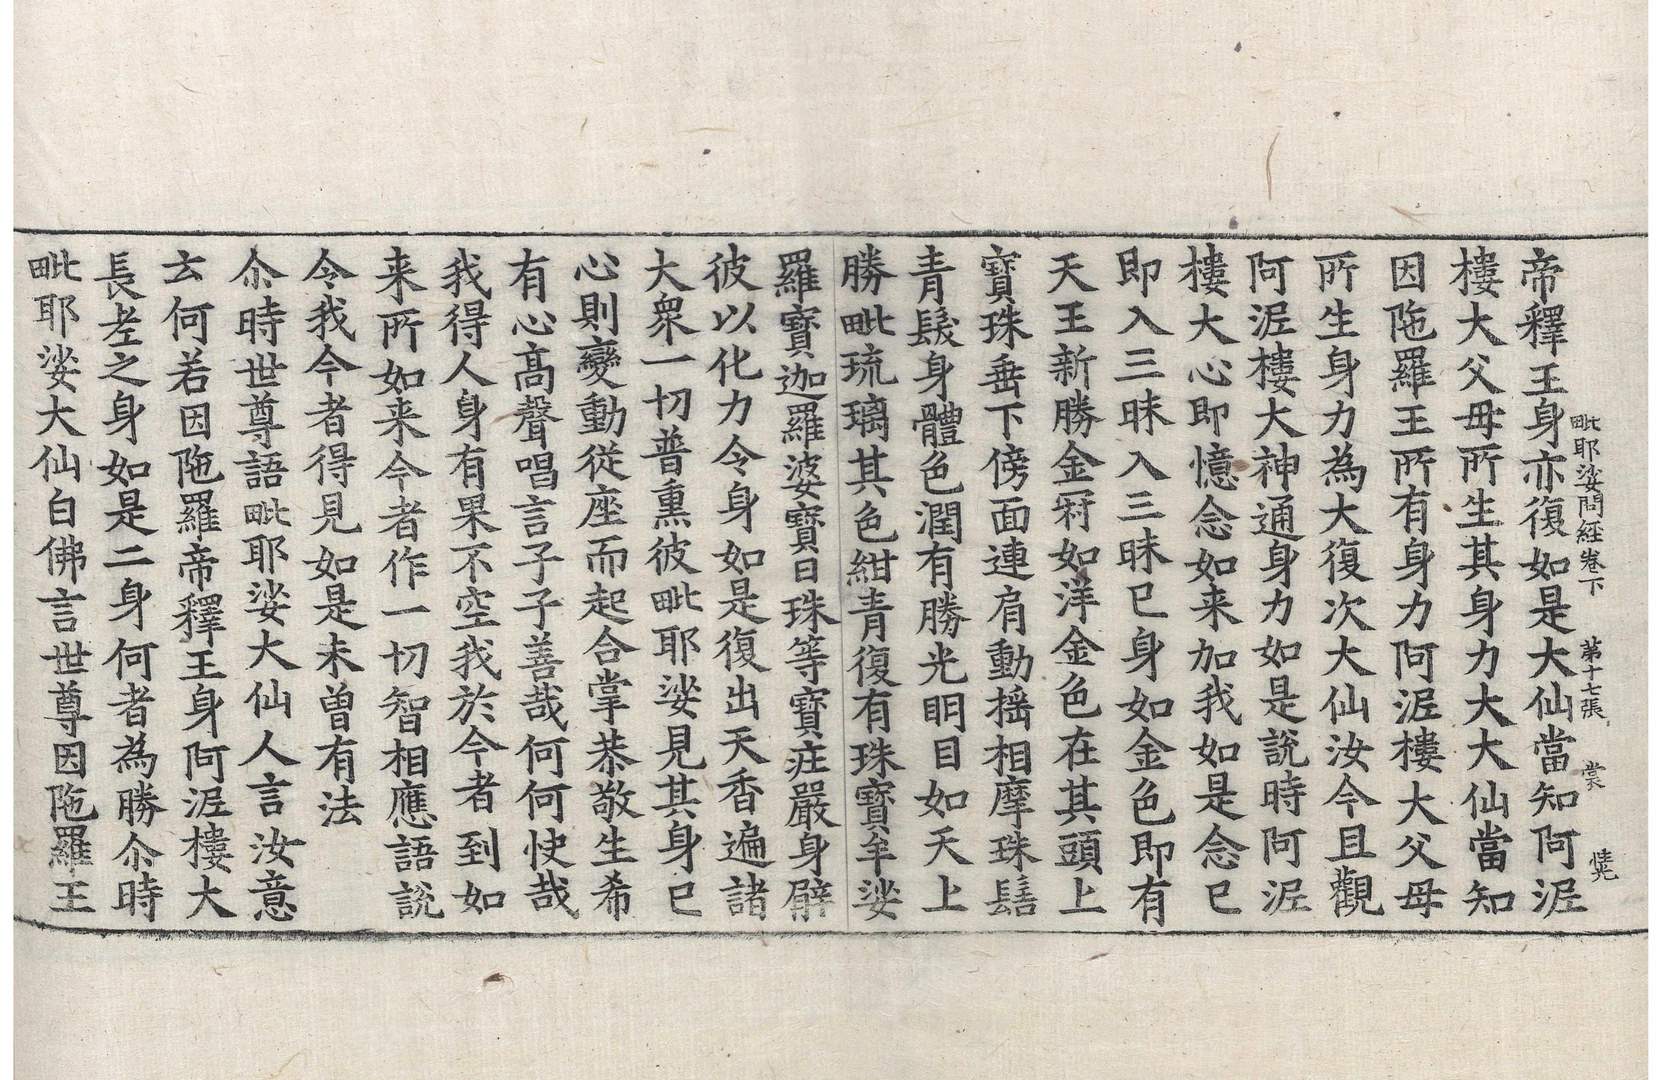 毗耶娑問經卷下 第十七張 裳
帝釋王身亦復如是大仙當知阿泥
樓大父母所生其身力大大仙當知
因陁羅王所有身力阿泥樓大父母
所生身力為大復次大仙汝今且觀
阿泥樓大神通身力如是說時阿泥
樓大心即憶念如来加我如是念已
即入三昧入三昧已身如金色即有
天王新勝金冠如洋金色在其頭上
寶珠垂下傍面連肩動摇相摩珠髻
青髮身體色潤有勝光明目如天上
勝毗琉璃其色紺青復有珠寶牟娑
羅寶迦羅婆寶日珠等寶莊嚴身臂
彼以化力令身如是復出天香遍諸
大衆一切普熏彼毗耶娑見其身已
心則變動從座而起合掌恭敬生希
有心髙聲唱言子子善哉何何快哉
我得人身有果不空我於今者到如
来所如来今者作一切智相應語說
令我今者得見如是未曾有法
尒時世尊語毗耶娑大仙人言汝意
云何若因陁羅帝釋王身阿泥樓大
長老之身如是二身何者為勝尒時
毗耶娑大仙白佛言世尊因陁羅王